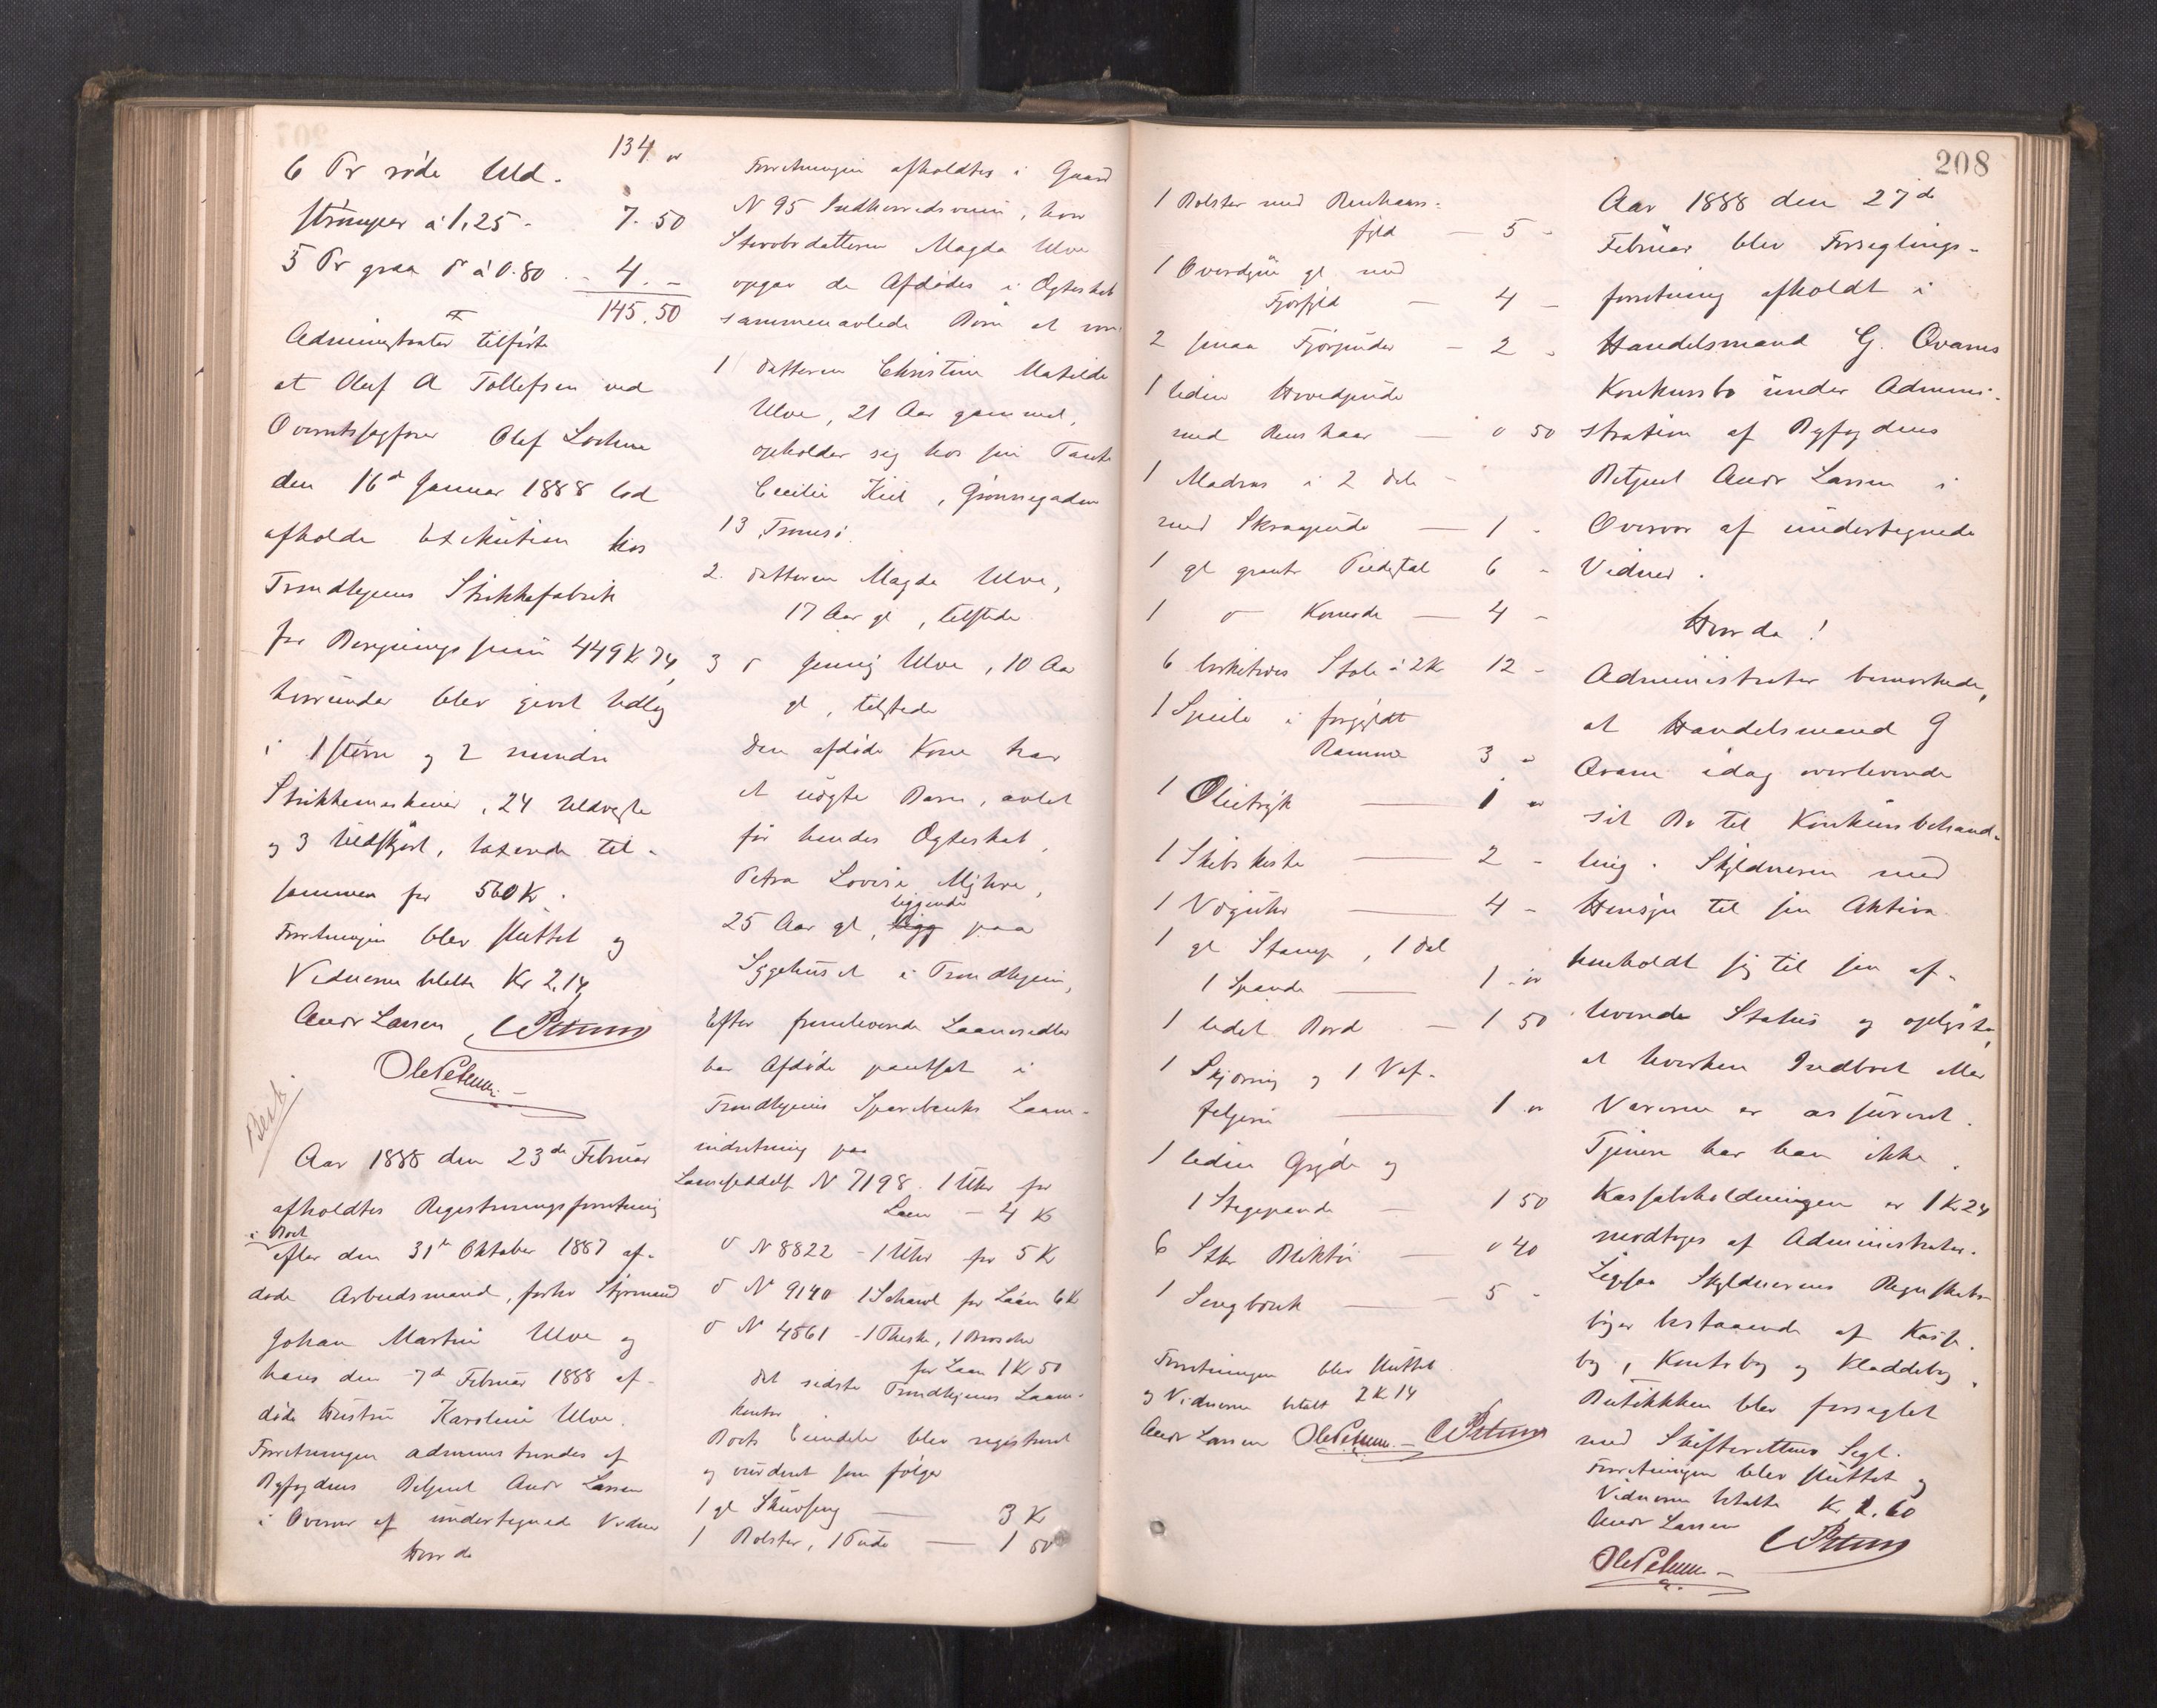 134 "
6 Pr røde Uld-
strømper à 1,25 - 7. 50
5 Pr graa do à 0.80 - 4. -
145. 50
Administrator tilførte
at Oluf A Tollefsen ved
Overretssagfører Olaf Lochen
den 16de Januar 1888 lod
afholde Exekution hos
Trondhjems Strikkefabrik
for Rekningssum 449 Kr 74,
hvorunder blev gjort Udlæg
i 1 større og 2 mindre
Strikkemaskiner, 24 Uldveste
og 3 Uldskjørt, taxerede til-
sammen for 560 Kr.
Forretningen blev sluttet og
Vidnerne betalte Kr 2,14
Andr Larsen CPetersen
Ole Petersen
Besk.
Aar 1888 den 23de Februar
afholdtes Registreringsforretning
i Boet
efter den 31te Oktober 1887 af-
døde Arbeidsmand, forhv Styrmand
Johan Martin Ulve og
hans den 7de Februar 1888 af-
døde Hustru Karoline Ulve.
Forretningen administreredes af
Byfogdens Betjent Andr Larsen
i Overvær af undertegnede Vidner
Hvorda
Forretningen afholdtes i Gaard
N 95 Indherredsveien, hvor
Stervbodatteren Magda Ulve
opgav de Afdødes i Ægteskab
sammenavlede Børn at være
1 Datteren Christine Matilde
Ulve, 21 Aar gammel,
opholder sig hos sin Tante
Cecilie Kiil, Grønnegaden
13 Tromsø.
2. Datteren Magda Ulve,
17 Aar gl, tilstede
3 do Jenny Ulve, 10 Aar
gl, tilstede
Den afdøde Kone har
et uægte Barn, avlet
før hendes Ægteskab,
Petra Lovise Myhre,
liggende
25 Aar gl, ligg paa
Sygehuset i Trondhjem,
Efter fremlevende Laanesedler
har Afdøde pantsat i
Trondhjems Sparebanks Laane-
indretning paa
Laaneseddel N 7198. 1 Uhr for
Laan - 4 Kr
do N 8822 - 1 Uhr for 5 Kr
do N 9140 1 Schawl for Laan 6 Kr
do N 4561 - 1 Theske, 1 Brosche
for Laan 1 Kr 50
det sidste Trondhjems Laane-
kontor
Boets Eiendele blev registreret
og vurderet som følger
1 gl Skuvseng - 3 Kr
1 Bolster, 1 Pude - 1 50
208
1 Bolster med Renhaars-
fyld - 5 -
1 Overdyne gl med
Fjørfyld - 4 -
2 smaa Fjørpuder - 2 -
1 liden Hovedpude
med Renshaar - " 50
1 Madras i 2 Dele -
med Skraapude - 1 -
1 gl graat Piedestal 6 -
1 do Komode - 4 -
6 birketræs Stole à 2 Kr 12 -
1 Speile i forgyldt
Ramme 3 "
1 Olietryk - 1 "
1 Skibskiste - 2 -
1 Væguhr - 4 -
1 gl Stamp, 1 Dal
1 Spande - 1 "
1 lidet Bord - 1 50
1 Skjæring og 1 Vaf-
feljern - 1 "
1 liden Gryde og
1 Stegepande - 1 50
6 Stkr Bliktøi - " 40
1 Sengbænk - 5 -
Forretningen blev sluttet
og Vidnerne betalt 2 Kr 14
Andr Larsen Ole Petersen CPetersen
Aar 1888 den 27de
Februar blev Forseglings-
forretning afholdt i
Handelsmand G. Qvams
Konkursbo under Admini-
stration af Byfogdens
Betjent Andr Larsen i
Overvær af undertegnede
Vidner.
Hvorda!
Administrator bemærkede,
at Handelsmand G
Qvam idag overleverede
sit Bo til Konkursbehand-
ling. Skyldneren med
Hensyn til sin Aktiva
henholdt sig til sin af-
leverede Status og oplyste,
at hverken Indboet eller
Varerne er assureret.
Tjenere har han ikke.
Kassabeholdningen er 1 Kr 24
modtoges af Administrator.
Ligesaa Skyldnerens Regnskabs-
bøger bestaaende af Kasse-
bog, Kontobog og Kladdebog.
Butikken blev forseglet
med Skifterettens Segl.
Forretningen blev sluttet og
Vidnerne betalte Kr 1.60
Andr Larsen CPetersen
Ole Petersen